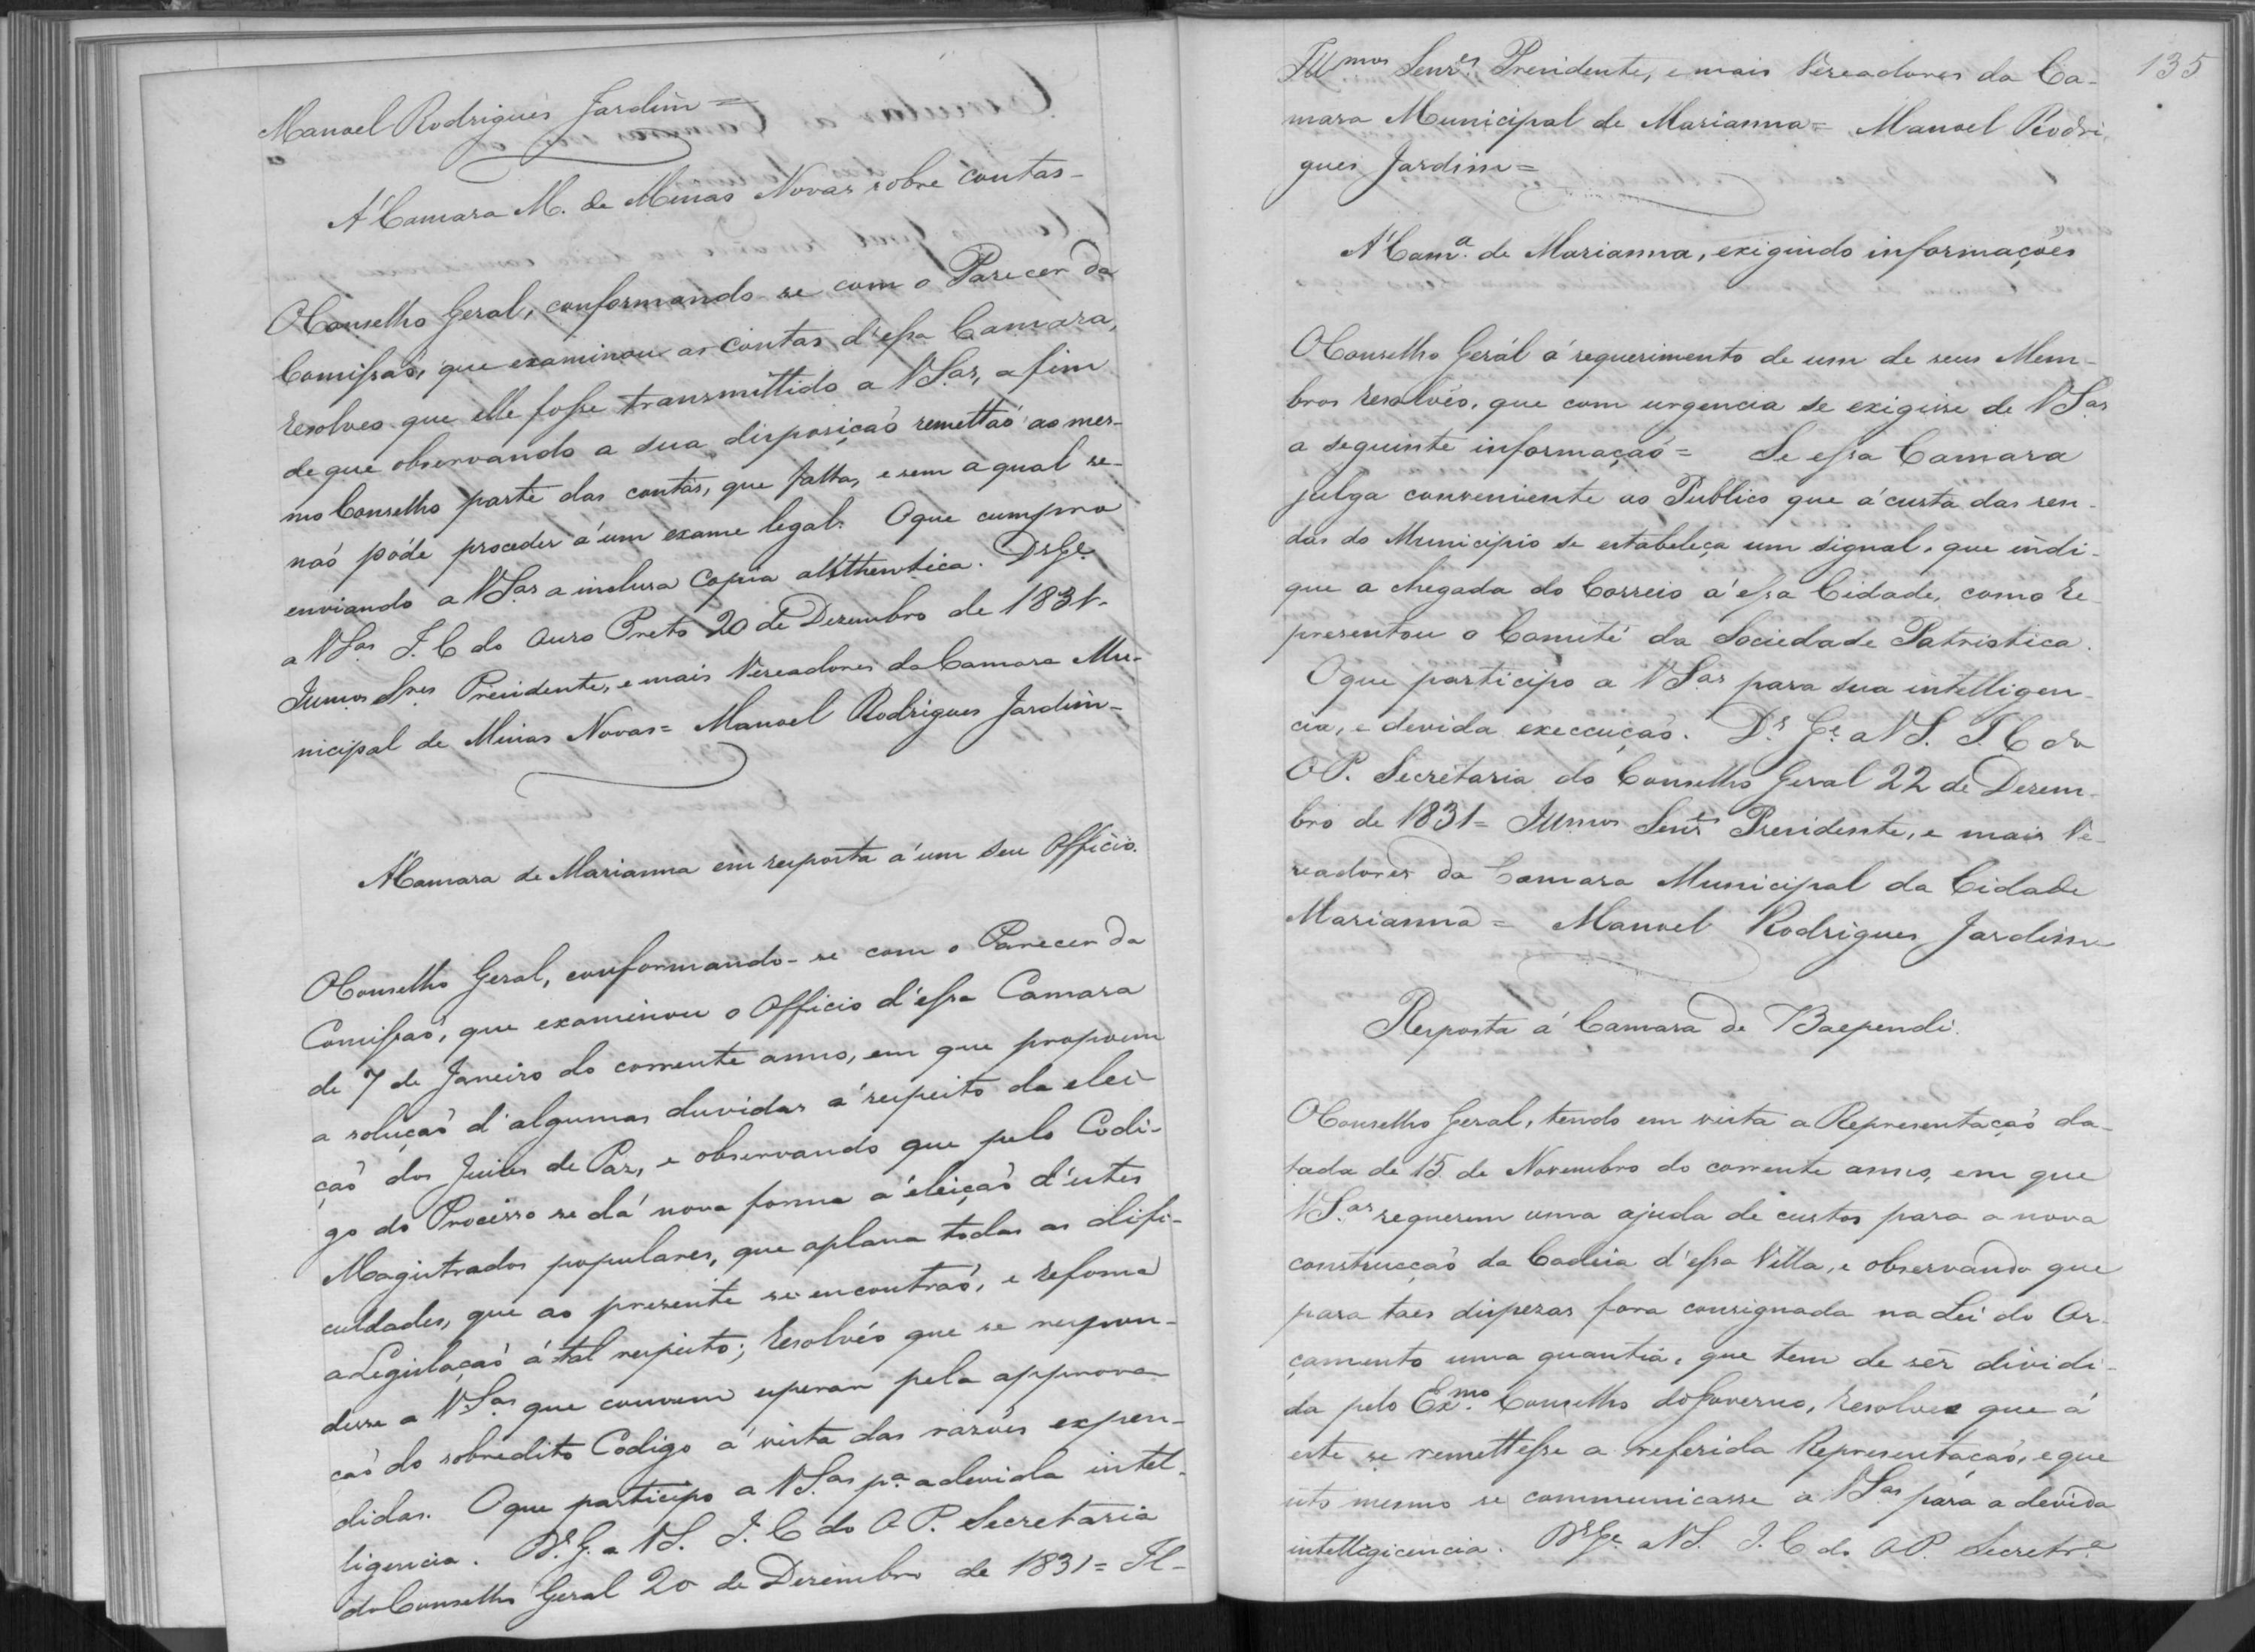 Manoel Rodrigues Jardim =
A' Camara M. de Minas Novas sobre contas -
O Conselho Geral, conformando se com o Parecer da
Comissaõ, que examinou as contas d'essa Camara,
resolveo que elle fosse transmittido a VSas, a fim
de que observando a sua disposiçaõ remettaõ ao mes-
mo Conselho parte das contas, que falta, e sem a qual se-
naõ póde proceder á um exame legal. O que cumpro
enviando a VSas a inclusa Copia authentica. Ds Ge
a VSas I. C do Ouro Preto 20 de Dezembro de 1831 -
Illmos Snres Presidente, e mais Vereadores da Camara Mu-
nicipal de Minas Novas = Manoel Rodrigues Jardim -
A' Camara de Marianna em resposta á um seu Officio.
O Conselho Geral, conformando-se com o Parecer da
Comissaõ, que examinou o Officio d'essa Camara
de 7 de Janeiro do corrente anno, em que propoem
a soluçaõ d'algumas duvidas á respeito da elei-
çaõ dos Juizes de Paz, e observando que pelo Codi-
go do Processo se dá nova forma á eleiçaõ d'estes
Magistrados populares, que aplana todas as difi-
culdades, que ao presente se encontraõ, e reforma
a Legislaçaõ á tal respeito; resolvéo que se respon-
desse a VSas que convem esperar pela approva
çaõ do sobredito Codigo á vista das razoẽs expen-
didas. O que participo a VSas pa a devida intel-
ligencia. Ds G. a VS. I. C do O P. Secretaria
do Conselho Geral 20 de Dezembro de 1831 = Il-
135
Illmos Senres Presidente, e mais Vereadores da Ca-
mara Municipal de Marianna = Manoel Rodri
gues Jardim =
A' Cama. de Marianna, exigindo informações
O Conselho Gerál á requerimento de um de seus Mem-
bros resolvéo, que com urgencia se exigisse de VSas
a seguinte informaçaõ = Se essa Camara
julga conveniente ao Publico que á custa das ren-
das do Municipio se estabeleça um signal, que indi-
que a chegada do Correio á essa Cidade, como re-
presentou o Comité da Sociedade Patriotica.
O que participo a VSas para sua intelligen-
cia, e devida execcuçaõ. Ds Ge a VS. I. C do
O P. Secretaria do Conselho Geral 22 de Dezem-
bro de 1831 = Illmos Senres Presidente, e mais Ve-
readores da Camara Municipal da Cidade
Marianna = Manoel Rodrigues Jardim
Resposta á Camara de Baependi.
O Conselho Geral, tendo em vista a Representaçaõ da-
tada de 15 de Novembro do corrente anno, em que
VS.as requerem uma ajuda de custos para a nova
construcçaõ da Cadeia d'essa Villa, e observando que
para taes dispezas fora consignada na Lei do Or-
çamento uma quantia, que tem de sêr dividi-
da pelo Exmo. Conselho do Governo, resolveo que á
este se remettesse a referida Representaçaõ, e que
isto mesmo se communicasse a VSas para a devida
intelligicencia. Ds Ge a VS. I. C do O P. Secretra